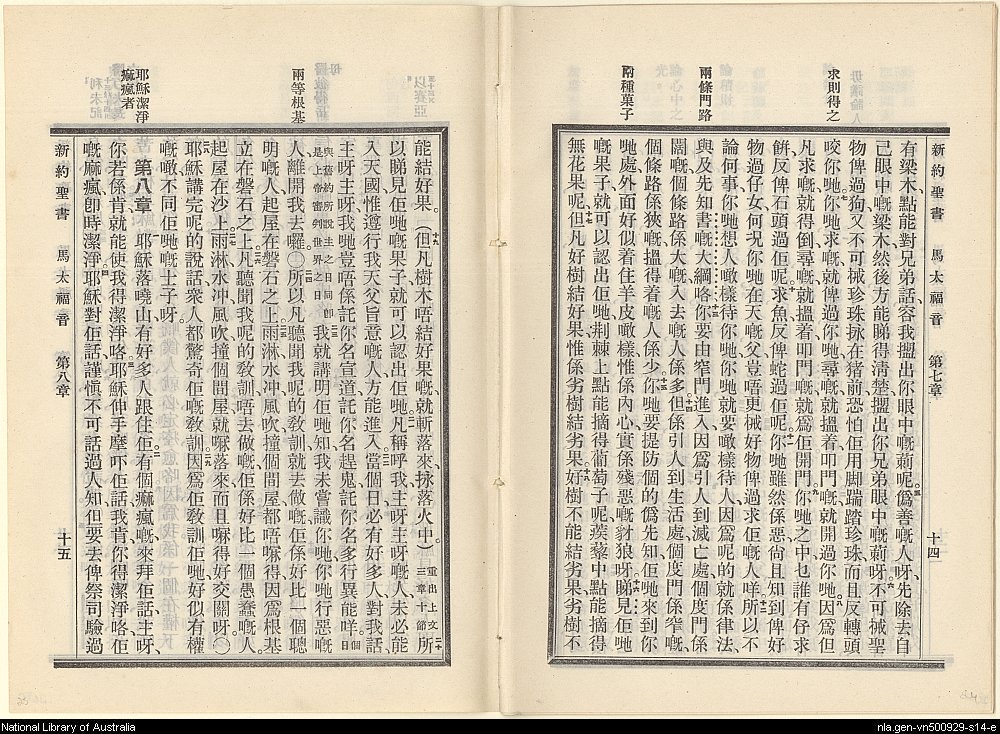 新約聖書 馬太福音 第七章 十四
求則得之
兩條門路
兩種菓子
有梁木點能對兄弟話容我搵出你眼中嘅莿呢僞善嘅人呀先除去自
己眼中嘅梁木然後方能睇得清楚搵出你兄弟眼中嘅莿呀不可
物俾過狗又不可
咬你哋你哋求嘅就俾過你哋尋嘅就搵着叩門嘅就開過你哋因爲但
凡求嘅就得倒尋嘅就搵着叩門嘅就爲佢開門你哋之中乜誰有仔求
餅反俾石頭過佢呢求魚反俾蛇過佢呢你哋雖然係惡尙且知到俾好
物過仔女何况你哋在天嘅父豈唔更
論何事你哋想人噉樣待你哋你哋就要噉樣待人因爲呢的就係律法
與及先知書嘅大綱咯你要由窄門進入因爲引人到滅亡處個度門係
闊嘅個條路係大嘅入去嘅人係多但係引人到生活處個度門係窄嘅
個條路係狹嘅搵得着嘅人係少你哋要提防個的僞先知佢哋來到你
哋處外面好似着住羊皮噉樣惟係內心實係殘惡嘅豺狼呀睇見佢哋
嘅果子就可以認出佢哋荆棘上點能摘得葡萄子呢蒺藜中點能摘得
無花果呢但凡好樹結好果惟係劣樹結劣果好樹不能結劣果劣樹不
新約聖書 馬太福音 第八章 十五
兩等根基
耶穌潔淨
痲瘋者
能結好果(但凡樹木唔結好果嘅就斬落來掉落火中)重出上文三章十節所
以睇見佢哋嘅果子就可以認出佢哋凡稱呼我主呀主呀嘅人未必能
入天國惟遵行我天父旨意嘅人方能進入當個日必有好多人對我話
主呀主呀我哋豈唔係託你名宣道託你名趕鬼託你名多行異能咩個日
與舊約所說主之日同卽是上帝審判世界之日我就講明佢哋知我未嘗識你哋你哋行惡嘅
人離開我去囉〇所以凡聽聞我呢的敎訓就去做嘅佢係好比一個聰
明嘅人起屋在磐石之上雨淋水冲風吹撞個間屋都唔冧得因爲根基
立在磐石之上凡聽聞我呢的敎訓唔去做嘅佢係好比一個愚蠢嘅人
起屋在沙上雨淋水冲風吹撞個間屋就冧落來而且冧得好交關呀〇
耶穌講完呢的說話衆人都驚奇佢嘅敎訓因爲佢敎訓佢哋好似有權
嘅噉不同佢哋嘅士子呀
第八章 耶穌落曉山有好多人跟住佢有個痲瘋嘅來拜佢話主呀
你若係肯就能使我得潔淨咯耶穌伸手摩吓佢話我肯你得潔淨咯佢
嘅痲瘋卽時潔淨耶穌對佢話謹愼不可話過人知但要去俾祭司驗過